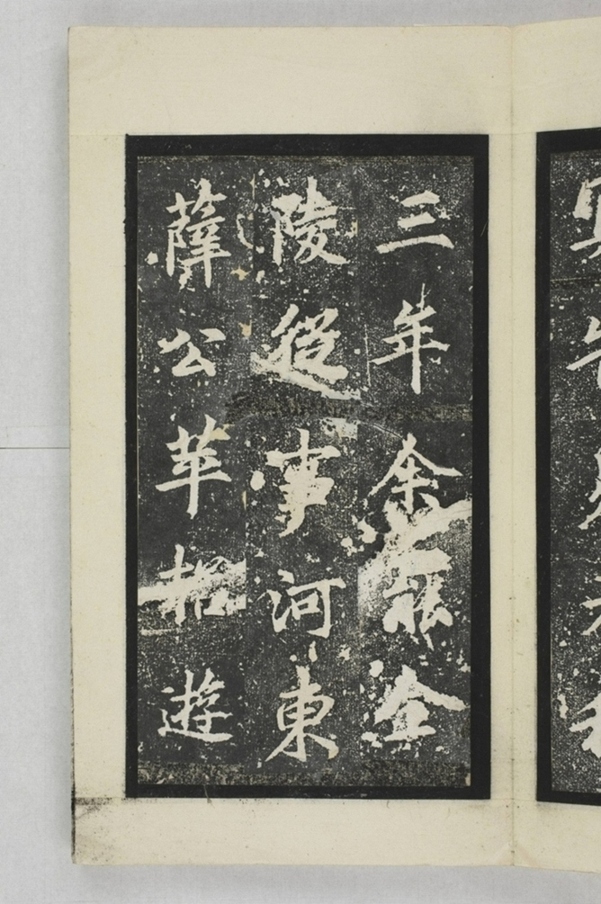 三年余罷金
陵從事河東
薛公苹招遊